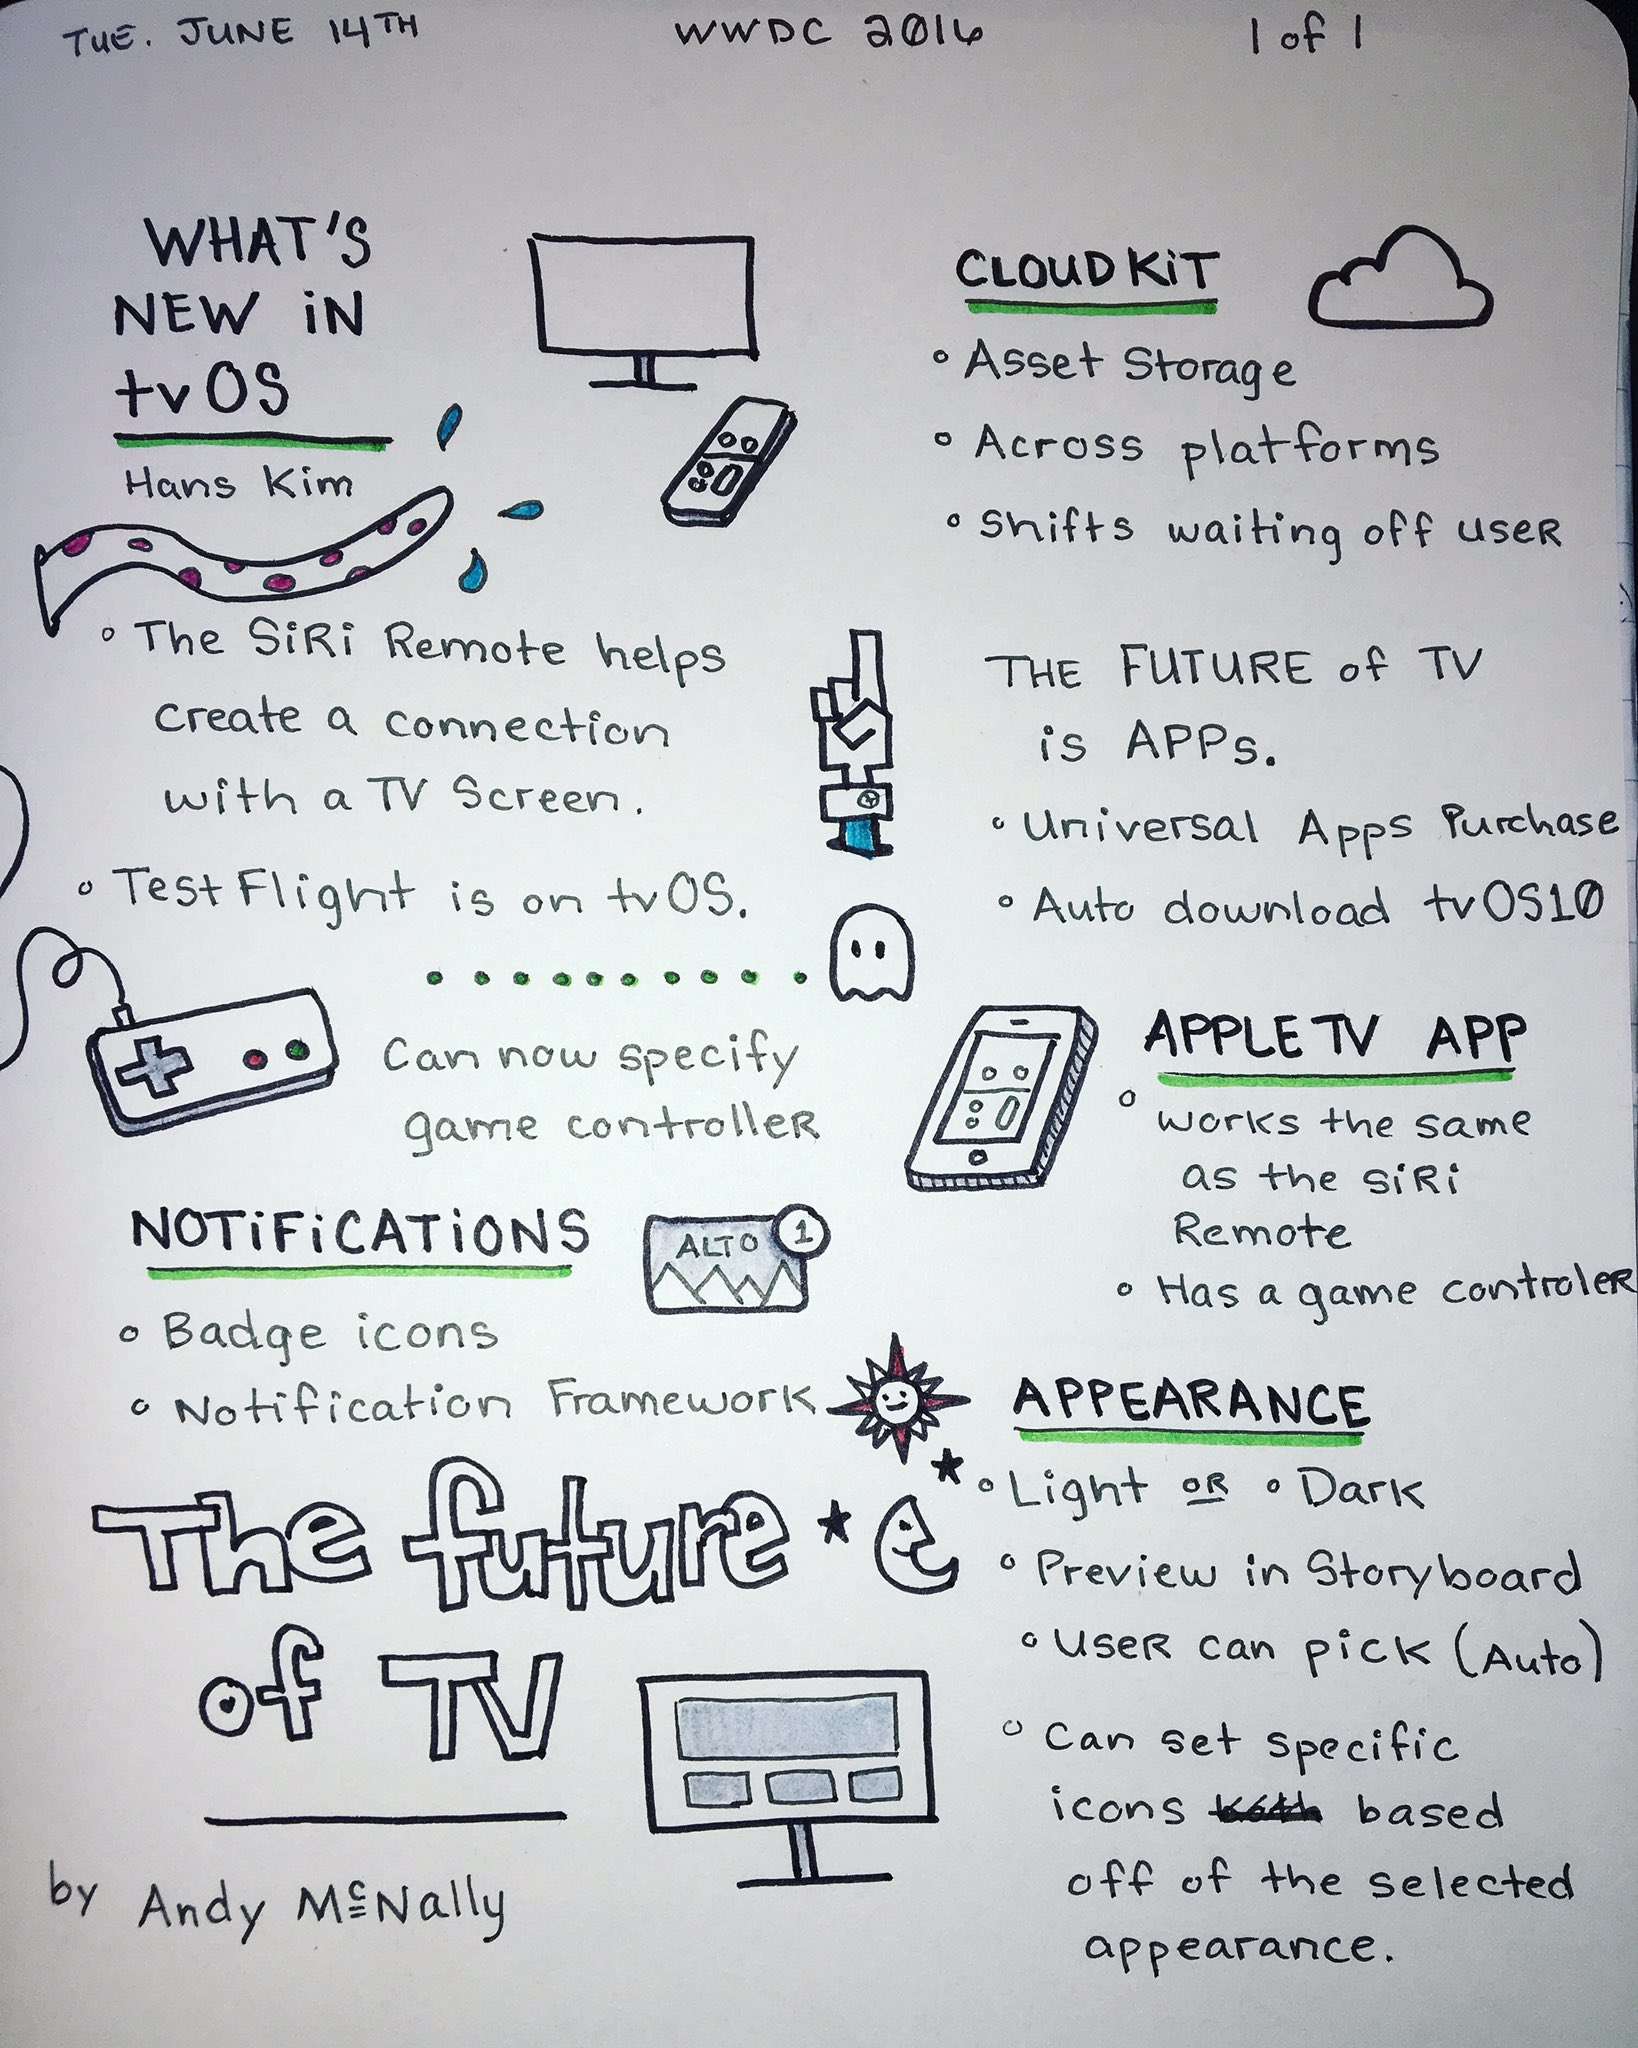 TUE. JUNE 14TH
WWDC 2016
1 of 1
WHAT'S
NEW iN
tvOS
Hans Kim
• The SiRi Remote helps
create a connection
with a TV Screen.
• TestFlight is on tvOS.
Can now specify
game controlleR
NOTiFiCATiONS
ALTO 1
• Badge icons
• Notification Framework
The future
of TV
by Andy McNally
CLOUDKiT
• Asset Storage
• Across platforms
• Shifts waiting off useR
THE FUTURE of TV
is APPs.
• Universal Apps Purchase
• Auto download tvOS10
APPLE TV APP
• works the same
as the SiRi
Remote
• Has a game controleR
APPEARANCE
• Light OR • Dark
• Preview in Storyboard
• useR can pick (Auto)
• Can set specific
icons based
off of the selected
appearance.